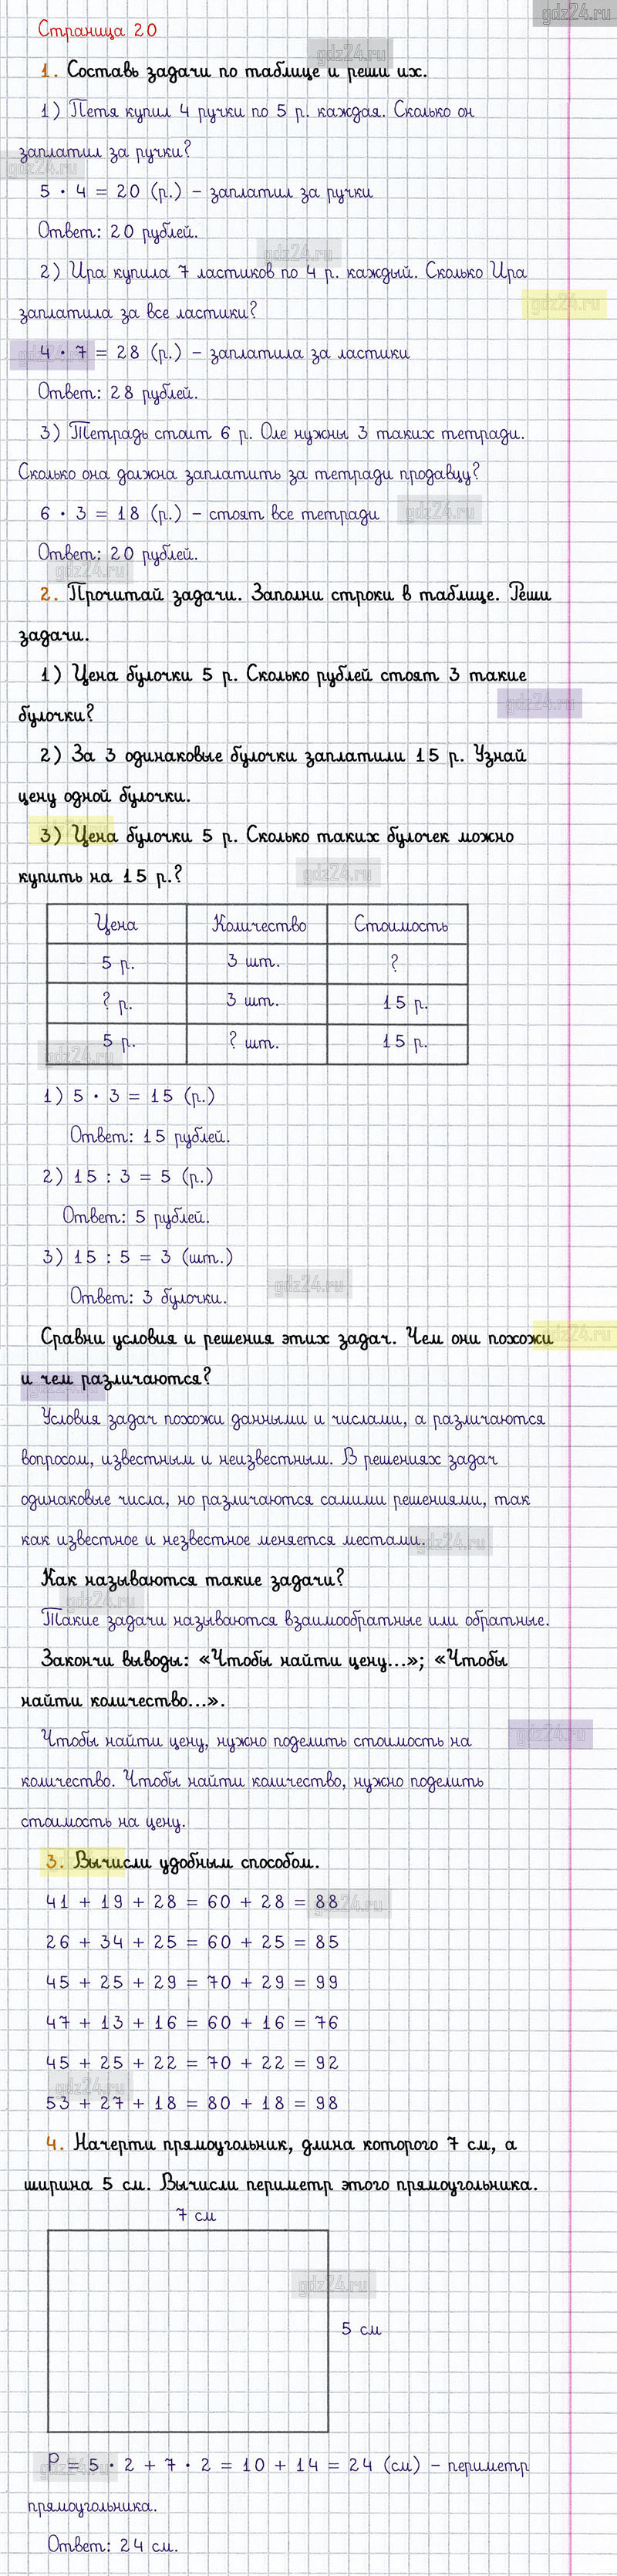 gdz24.ru
Страница 20
1. Составь задачи по таблице и реши их.
1) Петя купил 4 ручки по 5 р. каждая. Сколько он
заплатил за ручки?
5 · 4 = 20 (р.) – заплатил за ручки
Ответ: 20 рублей.
2) Ира купила 7 ластиков по 4 р. каждый. Сколько Ира
заплатила за все ластики?
4 · 7 = 28 (р.) – заплатила за ластики
Ответ: 28 рублей.
3) Тетрадь стоит 6 р. Оле нужны 3 таких тетради.
Сколько она должна заплатить за тетради продавцу?
6 · 3 = 18 (р.) – стоят все тетради
Ответ: 20 рублей.
2. Прочитай задачи. Заполни строки в таблице. Реши
задачи.
1) Цена булочки 5 р. Сколько рублей стоят 3 такие
булочки?
2) За 3 одинаковые булочки заплатили 15 р. Узнай
цену одной булочки.
3) Цена булочки 5 р. Сколько таких булочек можно
купить на 15 р.?
Цена Количество Стоимость
5 р. 3 шт. ?
? р. 3 шт. 15 р.
5 р. ? шт. 15 р.
1) 5 · 3 = 15 (р.)
Ответ: 15 рублей.
2) 15 : 3 = 5 (р.)
Ответ: 5 рублей.
3) 15 : 5 = 3 (шт.)
Ответ: 3 булочки.
Сравни условия и решения этих задач. Чем они похожи
и чем различаются?
Условия задач похожи данными и числами, а различаются
вопросом, известным и неизвестным. В решениях задач
одинаковые числа, но различаются самими решениями, так
как известное и незвестное меняется местами.
Как называются такие задачи?
Такие задачи называются взаимообратные или обратные.
Закончи выводы: «Чтобы найти цену...»; «Чтобы
найти количество...».
Чтобы найти цену, нужно поделить стоимость на
количество. Чтобы найти количество, нужно поделить
стоимость на цену.
3. Вычисли удобным способом.
41 + 19 + 28 = 60 + 28 = 88
26 + 34 + 25 = 60 + 25 = 85
45 + 25 + 29 = 70 + 29 = 99
47 + 13 + 16 = 60 + 16 = 76
45 + 25 + 22 = 70 + 22 = 92
53 + 27 + 18 = 80 + 18 = 98
4. Начерти прямоугольник, длина которого 7 см, а
ширина 5 см. Вычисли периметр этого прямоугольника.
7 см
5 см
P = 5 · 2 + 7 · 2 = 10 + 14 = 24 (см) – периметр
прямоугольника.
Ответ: 24 см.